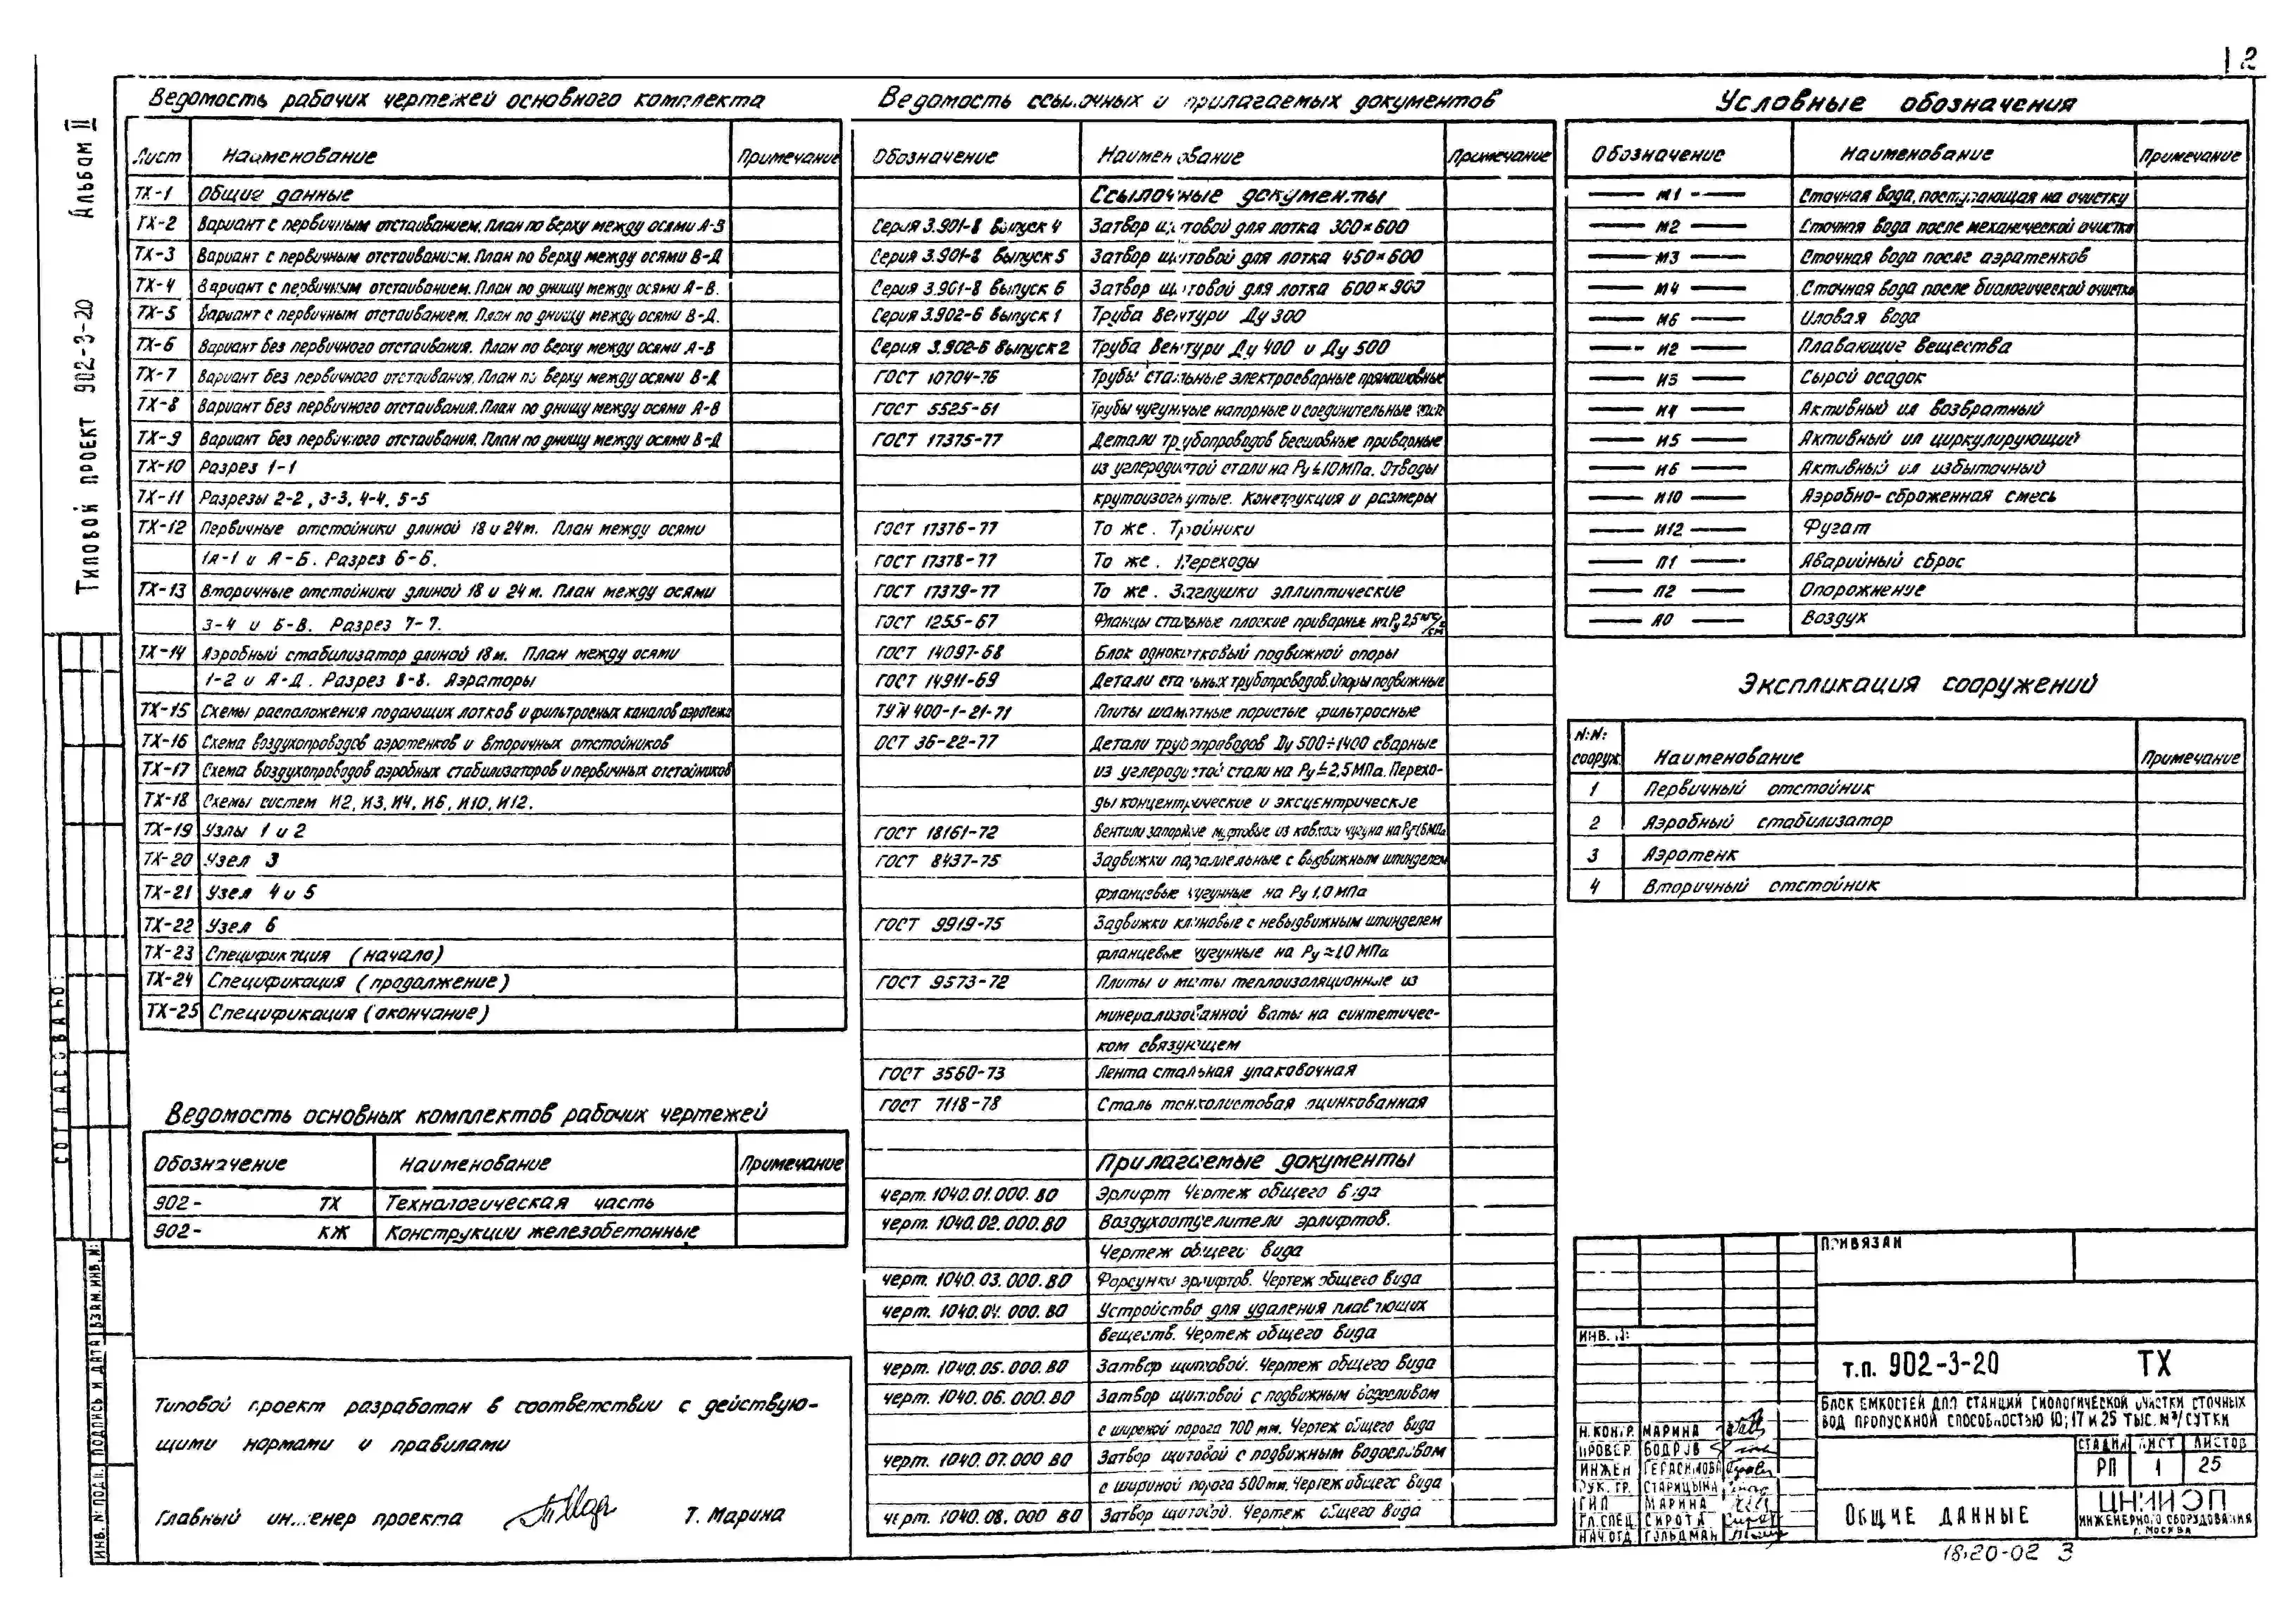 2
Альбом II
Типовой проект 902-3-20
Ведомость рабочих чертежей основного комплекта
Лист Наименование Примечание
ТХ-1 Общие данные
ТХ-2 Вариант с первичным отстаиванием. План по верху между осями А-В
ТХ-3 Вариант с первичным отстаиванием. План по верху между осями В-Д
ТХ-4 Вариант с первичным отстаиванием. План по днищу между осями А-В.
ТХ-5 Вариант с первичным отстаиванием. План по днищу между осями В-Д.
ТХ-6 Вариант без первичного отстаивания. План по верху между осями А-В
ТХ-7 Вариант без первичного отстаивания. План по верху между осями В-Д
ТХ-8 Вариант без первичного отстаивания. План по днищу между осями А-В
ТХ-9 Вариант без первичного отстаивания. План по днищу между осями В-Д
ТХ-10 Разрез 1-1
ТХ-11 Разрезы 2-2, 3-3, 4-4, 5-5
ТХ-12 Первичные отстойники длиной 18 и 24 м. План между осями
1А-1 и А-Б. Разрез 6-6.
ТХ-13 Вторичные отстойники длиной 18 и 24 м. План между осями
3-4 и Б-В. Разрез 7-7.
ТХ-14 Аэробный стабилизатор длиной 18 м. План между осями
1-2 и А-Д. Разрез 8-8. Аэраторы
ТХ-15 Схемы расположения подающих лотков и фильтросных каналов аэротенка
ТХ-16 Схема воздухопроводов аэротенков и вторичных отстойников
ТХ-17 Схема воздухопроводов аэробных стабилизаторов и первичных отстойников
ТХ-18 Схемы систем И2, И3, И4, И6, И10, И12.
ТХ-19 Узлы 1 и 2
ТХ-20 Узел 3
ТХ-21 Узел 4 и 5
ТХ-22 Узел 6
ТХ-23 Спецификация (начало)
ТХ-24 Спецификация (продолжение)
ТХ-25 Спецификация (окончание)
Ведомость основных комплектов рабочих чертежей
Обозначение Наименование Примечание
902- ТХ Технологическая часть
902- КЖ Конструкции железобетонные
Типовой проект разработан в соответствии с действую-
щими нормами и правилами
Главный инженер проекта Т. Марина
Ведомость ссылочных и прилагаемых документов
Обозначение Наименование Примечание
Ссылочные документы
Серия 3.901-8 Выпуск 4 Затвор щитовой для лотка 300×600
Серия 3.901-8 Выпуск 5 Затвор щитовой для лотка 450×600
Серия 3.901-8 Выпуск 6 Затвор щитовой для лотка 600×900
Серия 3.902-6 Выпуск 1 Труба Вентури Ду 300
Серия 3.902-6 Выпуск 2 Труба Вентури Ду 400 и Ду 500
ГОСТ 10704-76 Трубы стальные электросварные прямошовные
ГОСТ 5525-61 Трубы чугунные напорные и соединительные части
ГОСТ 17375-77 Детали трубопроводов бесшовные приварные
из углеродистой стали на Ру≤10 МПа. Отводы
крутоизогнутые. Конструкция и размеры
ГОСТ 17376-77 То же. Тройники
ГОСТ 17378-77 То же. Переходы
ГОСТ 17379-77 То же. Заглушки эллиптические
ГОСТ 1255-67 Фланцы стальные плоские приварные на Ру 25 кгс/см
ГОСТ 14097-68 Блок однокатковый подвижной опоры
ГОСТ 14911-69 Детали стальных трубопроводов. Опоры подвижные
ТУ № 400-1-21-71 Плиты шамотные пористые фильтросные
ОСТ 36-22-77 Детали трубопроводов Ду 500÷1400 сварные
из углеродистой стали на Ру≤2,5 МПа. Перехо-
ды концентрические и эксцентрические
ГОСТ 18161-72 Вентили запорные муфтовые из ковкого чугуна на Ру 1,6 МПа
ГОСТ 8437-75 Задвижки параллельные с выдвижным шпинделем
фланцевые чугунные на Ру 1,0 МПа
ГОСТ 9919-75 Задвижки клиновые с невыдвижным шпинделем
фланцевые чугунные на Ру≈1,0 МПа
ГОСТ 9573-72 Плиты и маты теплоизоляционные из
минерализованной ваты на синтетичес-
ком связующем
ГОСТ 3560-73 Лента стальная упаковочная
ГОСТ 7118-78 Сталь тонколистовая оцинкованная
Прилагаемые документы
черт. 1040.01.000.ВО Эрлифт Чертеж общего вида
черт. 1040.02.000.ВО Воздухоотделители эрлифтов.
Чертеж общего вида
черт. 1040.03.000.ВО Форсунки эрлифтов. Чертеж общего вида
черт. 1040.04.000.ВО Устройство для удаления плавающих
веществ. Чертеж общего вида
черт. 1040.05.000.ВО Затвор щитовой. Чертеж общего вида
черт. 1040.06.000.ВО Затвор щитовой с подвижным водосливом
с шириной порога 700 мм. Чертеж общего вида
черт. 1040.07.000 ВО Затвор щитовой с подвижным водосливом
с шириной порога 500 мм. Чертеж общего вида
черт. 1040.08.000 ВО Затвор щитовой. Чертеж общего вида
Условные обозначения
Обозначение Наименование Примечание
М1 Сточная вода, поступающая на очистку
М2 Сточная вода после механической очистки
М3 Сточная вода после аэратенков
М4 Сточная вода после биологической очистки
М6 Иловая вода
И2 Плавающие вещества
И3 Сырой осадок
И4 Активный ил возвратный
И5 Активный ил циркулирующий
И6 Активный ил избыточный
И10 Аэробно-сброженная смесь
И12 Фугат
П1 Аварийный сброс
П2 Опорожнение
А0 Воздух
Экспликация сооружений
№№ сооруж. Наименование Примечание
1 Первичный отстойник
2 Аэробный стабилизатор
3 Аэротенк
4 Вторичный отстойник
Привязан
Инв. №
т.п. 902-3-20 ТХ
Блок емкостей для станций биологической очистки сточных
вод пропускной способностью 10; 17 и 25 тыс. м³/сутки
Н.контр. Марина
Провер. Бодров
Инжен Герасимова
Рук. гр. Старицына
ГИП Марина
Гл.спец. Сирота
Нач.отд Гольдман
Стадия Лист Листов
РП 1 25
Общие данные
ЦНИИЭП
инженерного оборудования
г. Москва
18220-02 3
Согласовано:
Инв. № подл. Подпись и дата Взам. инв. №